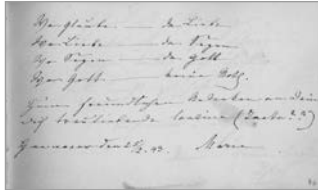 Wo Glaube — da Liebe
Wo Liebe — da Segen
Wo Segen — da Gott
Wo Gott — keine Noth.
Zum freundlichen Andenken an Deine
Dich treuliebende
Hannover den 43.